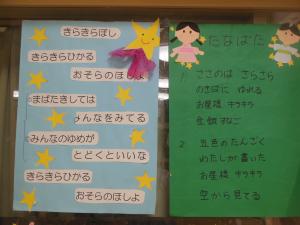 きらきらぼし
きらきらひかる
おそらのほしよ
まばたきしては
みんなをみてる
みんなのゆめが
とどくといいな
きらきらひかる
おそらのほしよ
たなばた
1 ささのは さらさら
のきばに ゆれる
お星様 キラキラ
金銀すなご
2 五色のたんざく
わたしが書いた
お星様 キラキラ
空から見てる